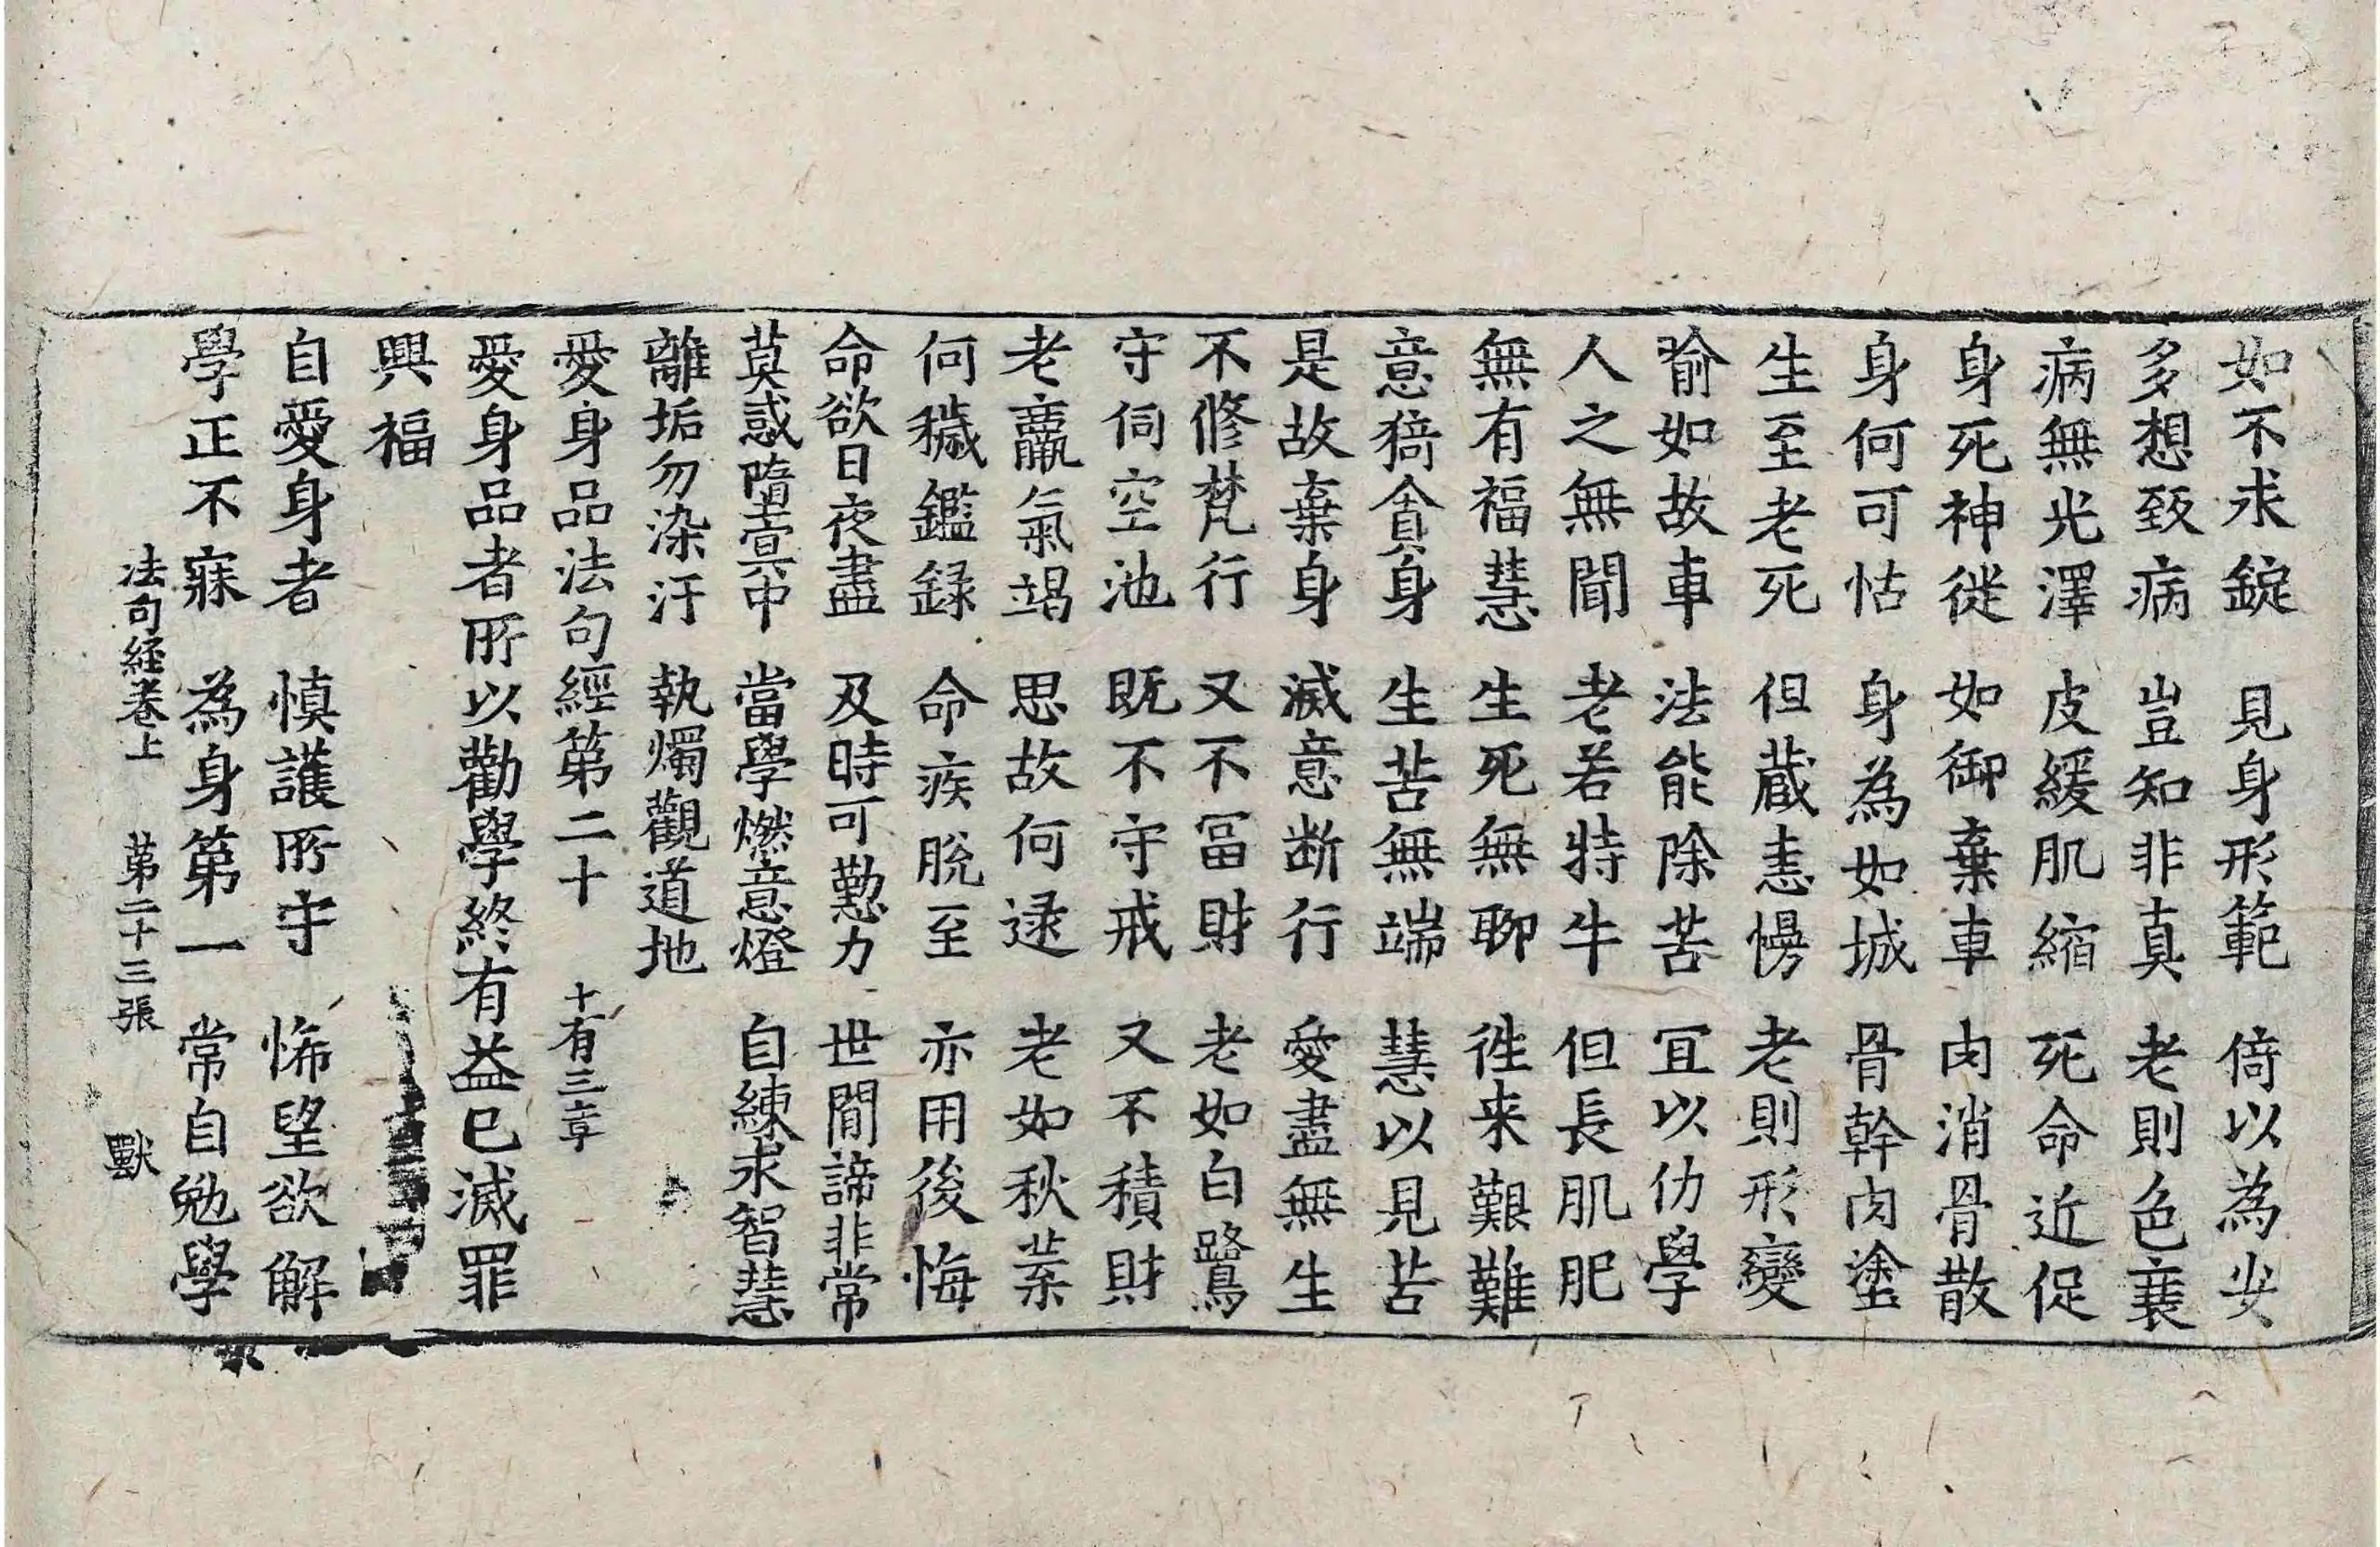 如不求錠　見身形範　倚以為安
多想致病　豈知非真　老則色衰
病無光澤　皮緩肌縮　死命近促
身死神徙　如御棄車　肉消骨散
身何可怙　身為如城　骨幹肉塗
生至老死　但藏恚慢　老則形變
喻如故車　法能除苦　宜以仂學
人之無聞　老若特牛　但長肌肥
無有福慧　生死無聊　徃来艱難
意猗貪身　生苦無端　慧以見苦
是故棄身　滅意断行　愛盡無生
不修梵行　又不冨財　老如白鷺
守伺空池　既不守戒　又不積財
老羸氣竭　思故何逮　老如秋葉
何穢鑑録　命疾脫至　亦用後悔
命欲日夜盡　及時可懃力　世間諦非常
莫惑墮冥中　當學燃意燈　自練求智慧
離垢勿染汙　執燭觀道地
愛身品法句經第二十　十有三章
愛身品者所以勸學終有益已滅罪
興福
自愛身者　慎護所守　悕望欲解
學正不寐　為身第一　常自勉學
法句経巻上　第二十三張　獸